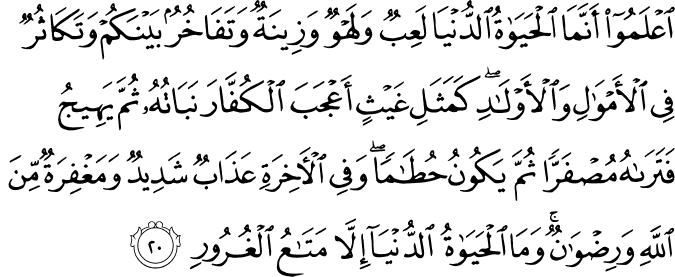 ٱعۡلَمُوٓاْ أَنَّمَا ٱلۡحَيَوٰةُ ٱلدُّنۡيَا لَعِبٞ وَلَهۡوٞ وَزِينَةٞ وَتَفَاخُرُۢ بَيۡنَكُمۡ وَتَكَاثُرٞ
فِي ٱلۡأَمۡوَٰلِ وَٱلۡأَوۡلَٰدِۖ كَمَثَلِ غَيۡثٍ أَعۡجَبَ ٱلۡكُفَّارَ نَبَاتُهُۥ ثُمَّ يَهِيجُ
فَتَرَىٰهُ مُصۡفَرّٗا ثُمَّ يَكُونُ حُطَٰمٗاۖ وَفِي ٱلۡأٓخِرَةِ عَذَابٞ شَدِيدٞ وَمَغۡفِرَةٞ مِّنَ
ٱللَّهِ وَرِضۡوَٰنٞۚ وَمَا ٱلۡحَيَوٰةُ ٱلدُّنۡيَآ إِلَّا مَتَٰعُ ٱلۡغُرُورِ ٢٠